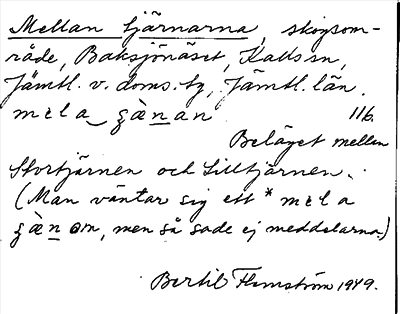 Mellan tjärnarna, skogsom-
råde, Baksjönäset, Kalls sn,
Jämtl. v. doms. tg, Jämtl. län.
mela gä̀nan 116.
Beläget mellan
Stortjärnen och Lilltjärnen.
(Man väntar sig ett *mela
gä̀nom, men så sade ej meddelarna.)
Bertil Flemström 1949.